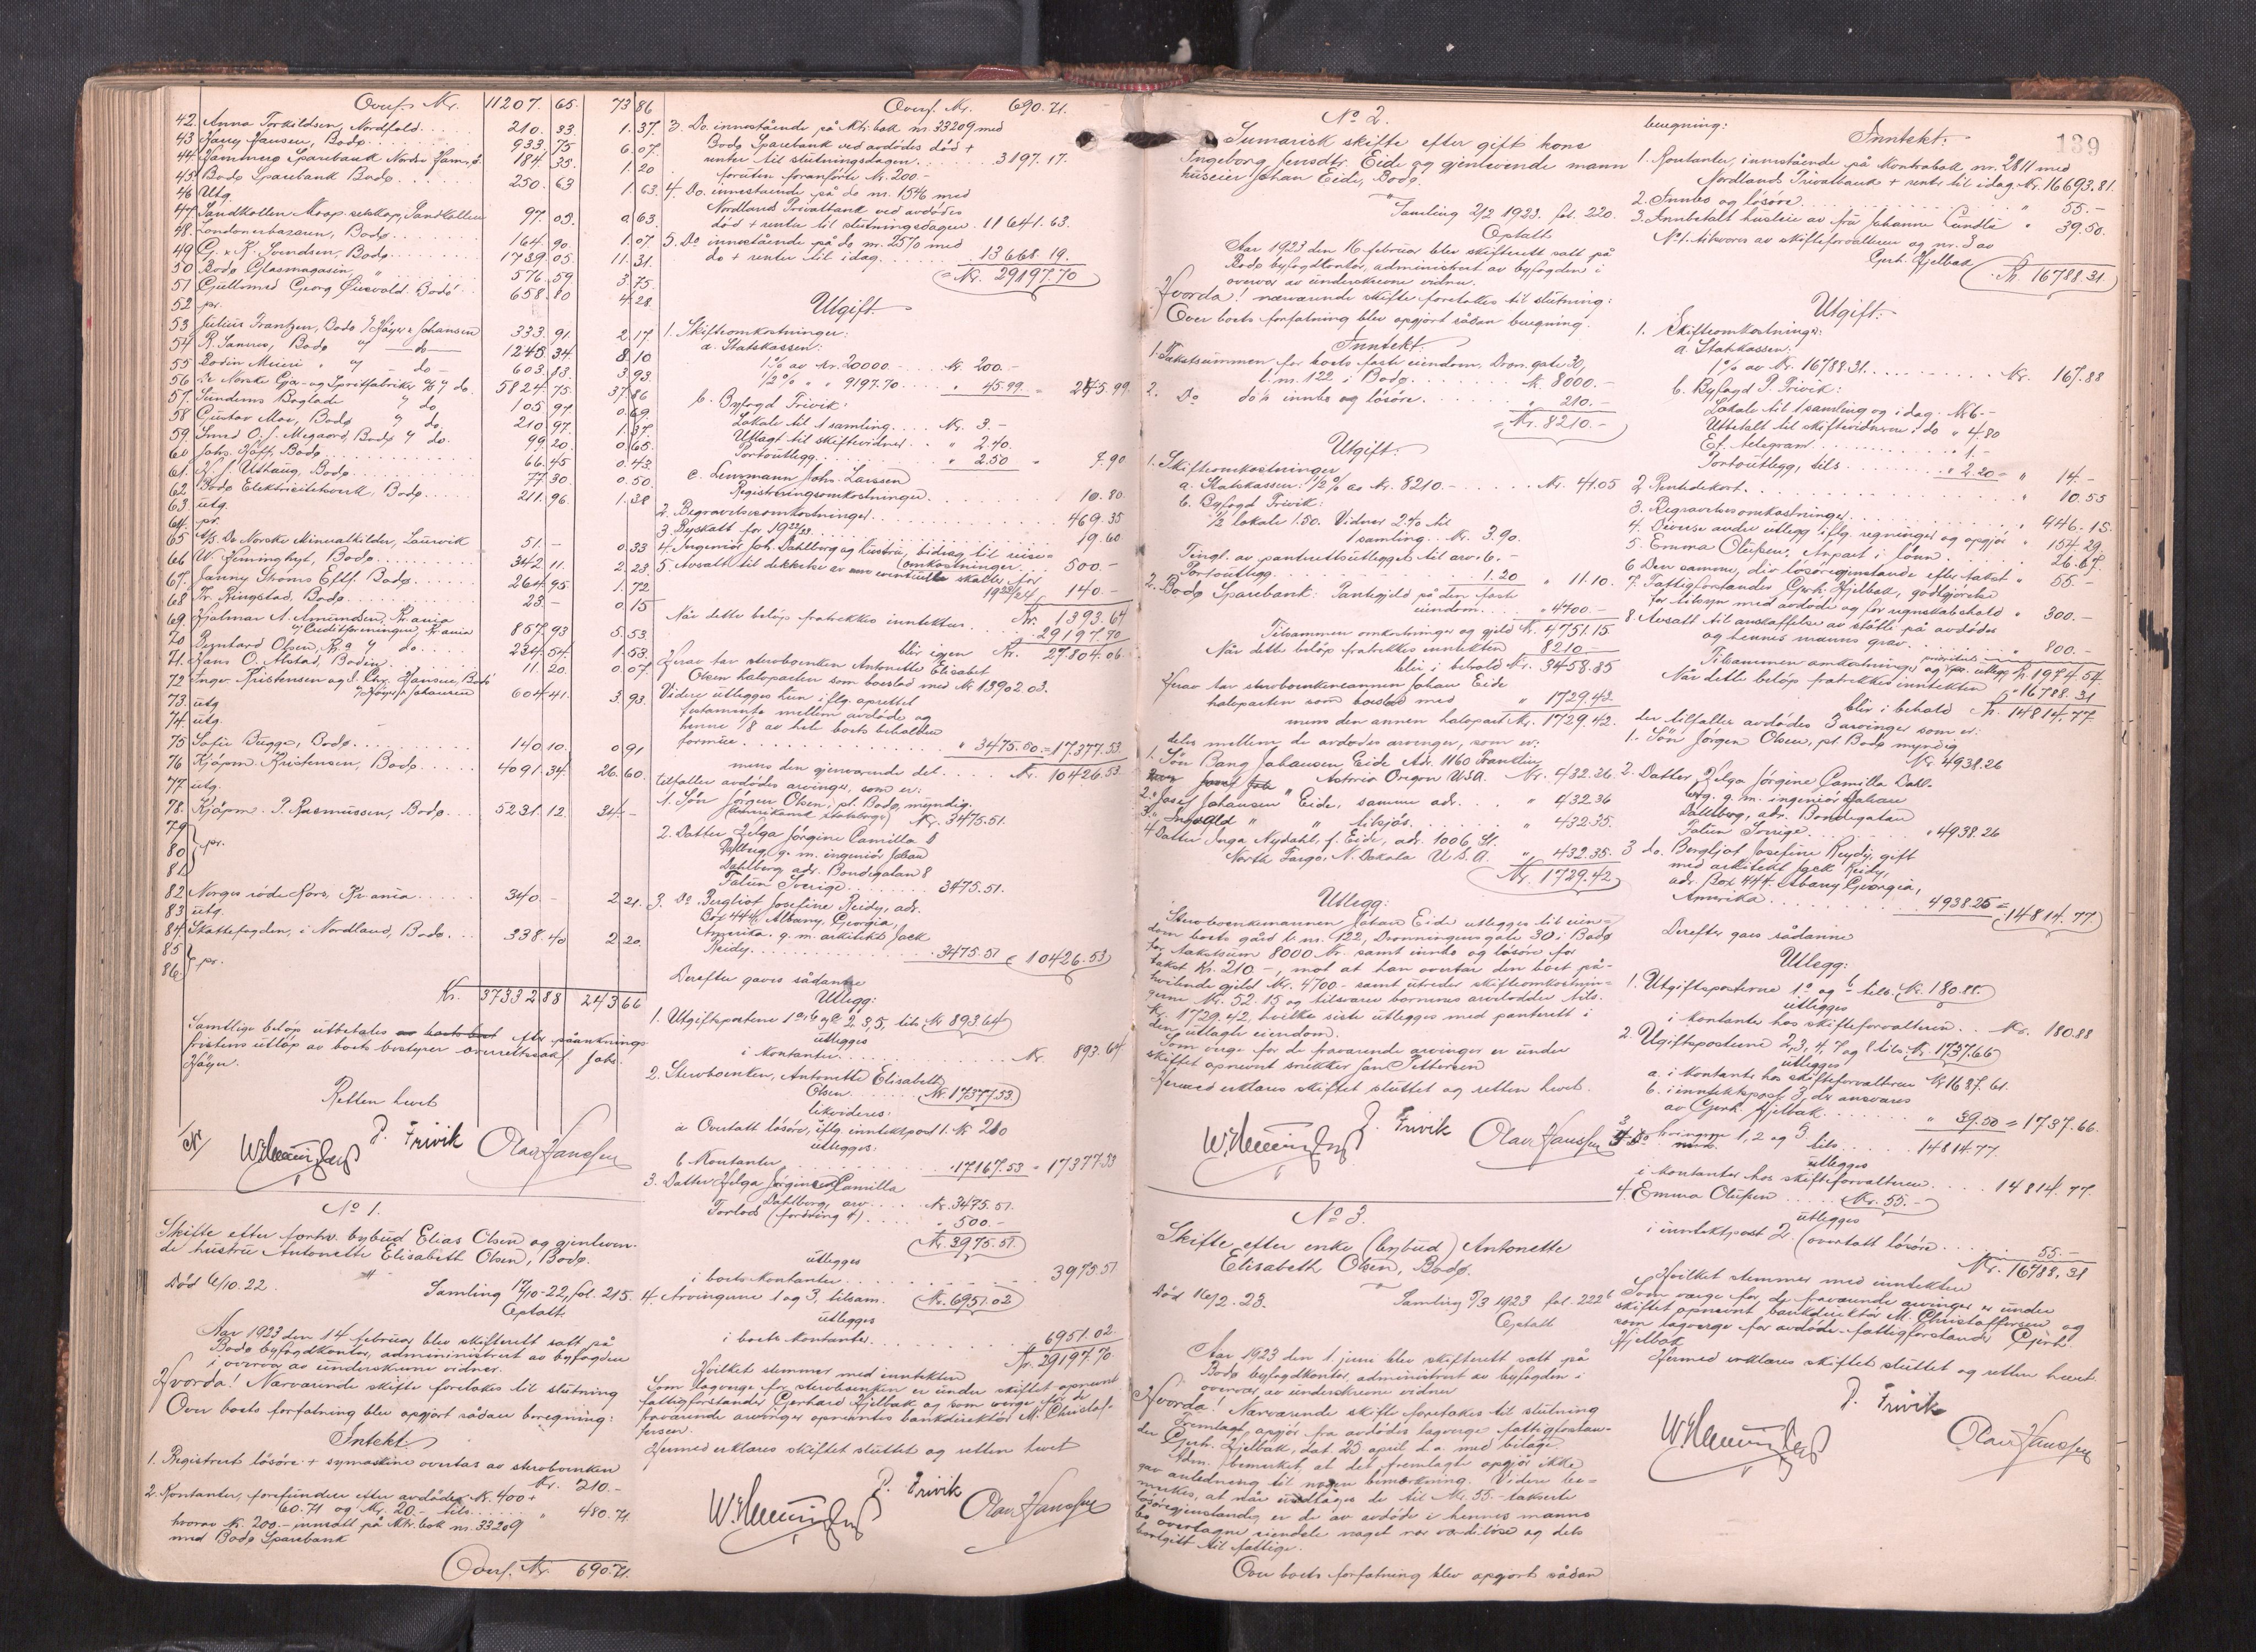 Overf. Kr. 11207. 65. 73 86
42. Anna Torkildsen, Nordfold 210. 33. 1. 37.
43 Harry Hansen, Bodø 933. 75 6. 07.
44. Hammerø Sparebank Nordre Ham.ø. 184. 35. 1. 20
45. Bodø Sparebank Bodø 250. 63 1. 63.
46 Utg.
47. Sandkollen Skogselskap, Sandkollen 97. 09. 0. 63.
48. Londonerbazaren, Bodø 164. 90. 1. 07.
49 G. & K. Svendsen, Bodø 1739. 05. 11. 31.
50 Bodø Glasmagasin, " 576. 59 3. 75.
51 Gullsmed Georg Øiesvold. Bodø 658. 80 4. 28.
52 pr.
53 Julius Frantzen, Bodø v/ Høyer & Johansen 333. 91. 2. 17
54 R. Janero, Bodø v/ — do — 1245. 34. 8. 10
55 Bodin Mieri v/ — do — 603. 83. 3. 93.
56 De Norske Gjær- og Spritfabriker v/ do. 5824. 75. 37. 86
57. Sundems Boglade v/ do 105. 97. 0. 69.
58 Gustav Moe, Bodø v/ do. 210. 97. 1. 37.
59. Smed O. J. Misgaard, Bodø v/ do. 99. 20. 0. 65.
60 Johs. Koff, Bodø 66. 45 0. 43.
61. H. J. Uthaug, Bodø 77. 30 0. 50.
62 Bodø Elektricitetsverk, Bodø 211. 96. 1. 38
63 utg.
64. pr.
65 A/S De Norske Mineralkilder, Laurvik 51. – 0. 33
66 W. Hemminghyt, Bodø 342. 11. 2. 23.
67. Janny Strøms Eftf. Bodø 264. 95. 1. 72
68 Tr. Ringstad, Bodø 23. – 0. 15
69 Hjalmar A. Amundsen, Kr.ania
v/ Creditforeningen, Kr.ania 857. 93 5. 53.
70 Bernhard Olsen, Kr.a v/ do. 234. 54. 1. 53.
71. Hans O. Alstad, Bodin 11. 20. 0. 07.
72 Inger Kristensen og J. Chr. Hansen, Bodø
v/ Høyer & Johansen 604. 41. 3. 93.
73. utg
74. utg.
75 Sofie Bugge, Bodø 140. 10. 0. 91
76 Kjøpm. Kristensen, Bodø 4091. 34. 26. 60.
77 utg.
78. Kjøpm. P. Rasmussen, Bodø 5231. 12. 34. –
79
80 pr.
81
82 Norges røde Kors, Kr.ania 340. – 2. 21.
83 utg.
84. Skattefogden i Nordland, Bodø 338. 40 2. 20.
85
86 pr.
Kr. 37332 88 243 66
Samtlige beløp utbetales av boets best efter påanknings-
fristens utløp av boets bestyrer overrettssakf. Johs.
Høyer.
Retten hevet
P. Trivik
Olav Hanssen
No 1.
Skifte efter forhv. bybud Elias Olsen og gjenleven-
de hustru Antonette Elisabeth Olsen, Bodø.
Død 6/10. 22. Samling 17/10-22, fol. 215.
Optatt.
Aar 1923 den 14 februar blev skifterett satt på
Bodø byfogdkontor, administrert av byfogden
i overvær av underskrevne vidner.
Hvorda! Nærværende skifte foretokes til slutning
Over boets forfatning blev opgjort sådan beregning:
Intekt.
1. Registrert løsøre + symaskine overtas av stervboenken
Kr. 210.–
2. Kontanter, forefundne efter avdøde Kr. 400 +
60.71 og Kr. 20.– tils. " 480. 71.
hvorav Kr. 200.– innsatt på Ktr. bok nr. 33209
med Bodø Sparebank
Overf. Kr. 690.71.
Overf. Kr. 690.71.
3. Do. innestående på Ktr. bok nr. 33209 med
Bodø Sparebank ved avdødes død +
renter til slutningsdagen 3197. 17.
foruten foranførte Kr. 200.–
4. Do. innestående på do nr. 1546 med
Nordlands Privatbank ved avdødes
død + renter til slutningsdagen 11641. 63.
5. Do innestående på do nr. 2570 med
do + renter til idag 13668. 19.
= Kr. 29197. 70
Utgift.
1. Skifteomkostninger:
a. Statskassen:
1% av Kr. 20000.– Kr. 200.–
1/2% " " 9197.70 " 45.99 = 245.99
b. Byfogd Trivik:
Lokale til 1 samling Kr. 3.–
Utlagt til skiftevidner " 2.40.
Portoutlegg " 2.50 " 7.90
c. Lensmann Johs. Larssen
Registreringsomkostninger 10. 80.
2. Begravelsesomkostninger 469. 35
3 Byskatt for 1922/23 19. 60
4. Ingeniør Joh. Dahlberg og hustru, bidrag til reise-
omkostninger 500.–
5 Avsatt til dekkelse av eventuelle skatter for
1923/24 140.–
Kr. 1393. 64
Når dette beløp fratrekkes inntekten 29197. 70
blir igjen Kr. 27.804.06.
Herav tar stervboenken Antonette Elisabet
Olsen halvparten som boeslod med Kr 13902.03.
Videre utlegges hun iflg. oprettet
testamente mellem avdøde og
henne 1/8 av hele boets beholdne
formue " 3475.50. = 17377.53.
mens den gjenværende del Kr. 10426.53
tilfaller avdødes arvinger, som er:
1. Søn Jørgen Olsen, pt. Bodø, myndig.
(Amerikansk statsborger) Kr. 3475.51.
2. Datter Helga Jørgine Camilla
Dahlberg, g. m. ingeniør Johan
Dahlberg adr. Bondegatan 8
Falun Sverige 3475.51.
3. Do Bergliot Josefine Reidy, adr.
Box 444, Albany, Georgia,
Amerika. g. m. arkitekt Jack
Reidy 3475.51 = 10426.53
Derefter gaves sådanne
Utlegg:
1. Utgiftspostene 1 a, b og c 2, 3, 5, tils. Kr. 893.64
utlegges
i kontanter Kr. 893.64
2. Stervboenken, Antonette Elisabeth
Olsen Kr. 17377.53.
likvideres:
a Overtatt løsøre, iflg. inntektspost 1. Kr 210
utlegges:
b Kontanter 17167.53 = 17377.53
3. Datter Helga Jørgine Camilla
Dahlberg, arv Kr. 3475.51.
Forlod (fordring 4) " 500.–
Kr. 3975.51.
utlegges
i boets kontanter 3975.51
4. Arvingerne 1 og 3, tilsam. Kr. 6951.02
utlegges
i boets kontanter 6951.02
Kr. 29197.70.
Hvilket stemmer med inntekten
Som lagverge for stervboenken er under skiftet opnevnt
fattigforstander Gerhard Hjelbak og som verge for de
fraværende arvinger opnevntes bankdirektør M. Christof-
fersen.
Hermed erklæres skiftet sluttet og retten hevet
P. Trivik
Olav Hanssen
139
No 2.
Sumarisk skifte efter gift kone
Ingeborg Jensdtr. Eide og gjenlevende mann
huseier Johan Eide, Bodø.
Samling 2/2 1923. fol. 220.
Optatt
Aar 1923 den 16 februar blev skifterett satt på
Bodø byfogdkontor, administrert av byfogden i
overvær av underskrevne vidner.
Hvorda! nærværende skifte foretokes til slutning:
Over boets forfatning blev opgjort sådan beregning.
Inntekt.
1. Takstsummen for boets faste eiendom, Dron.gate 30,
b. nr. 122 i Bodø Kr. 8000.–
2. Do do% innbo og løsøre " 210.–
= Kr. 8210.–
Utgift.
1. Skifteomkostninger
a. Statskassen: 1/2% av Kr. 8210.– Kr. 41.05
b. Byfogd Trivik:
1/2 lokale 1.50. Vidner 2.40 til
1 samling Kr. 3.90.
Tingl. av panterettsutlegget til arv. 6.–
Portoutlegg 1.20 " 11.10.
2. Bodø Sparebank: Pantegjeld på den faste
eiendom " 4700.–
Tilsammen omkostninger og gjeld Kr. 4751.15
Når dette beløp fratrekkes inntekten 8210.–
blir i behold Kr. 3458.85
Herav tar stervboenkemannen Johan Eide
halvparten som boeslod med " 1729.43.
mens den annen halvpart Kr. 1729.42.
deles mellem de avdødes arvinger, som er:
1. Søn Bang Johansen Eide Adr. 1160 Franklin
Astoria Oregon USA. Kr. 432.36
2. Josef Johansen Eide, samme adr. " 432.36
3. Ingvald " " tilsjøs " 432.35.
4 Datter Inga Nydahl, f. Eide, adr. 1006, St.
North Fargo, N. Dakota U.S.A. " 432.35.
Kr. 1729.42
Utlegg:
Stervboenkemannen Johan Eide utlegges til eien-
dom boets gård b. nr. 122, Dronningensgate 30 i Bodø
for takstsum 8000 Kr. samt innbo og løsøre for
takst Kr. 210.–, mot at han overtar den boet på-
hvilende gjeld Kr. 4700.– samt utreder skifteomkostnin-
gerne Kr. 52.15 og tilsvarer barnenes arvelodder tils.
Kr. 1729.42, hvilke siste utlegges med panterett i
den utlagte eiendom.
Som verge for de fraværende arvinger er under
skiftet opnevnt snekker Jan Pettersen
Hermed erklæres skiftet sluttet og retten hevet.
P. Trivik
Olav Hanssen
No 3.
Skifte efter enke (bybud) Antonette
Elisabeth Olsen, Bodø.
Død 16/2. 23. Samling 5/3 1923 fol. 222
Optatt
Aar 1923 den 1. juni blev skifterett satt på
Bodø byfogdkontor, administrert av byfogden i
overvær av underskrevne vidner
Hvorda! Nærværende skifte foretokes til slutning
Fremlagt opgjør fra avdødes lagverge, fattigforstan-
der Gerh. Hjelbak, dat. 25 april d.a. med bilage.
Adm. bemerket, at det fremlagte opgjør ikke
gav anledning til nogen bemerkning. Videre be-
merkes, at når undtages de til Kr. 55.– takserte
løsøregjenstander er de av avdøde i hennes manns
bo overtagne eiendele noget nær verdiløse og dels
bortgitt til fattige.
Over boets forfatning blev opgjort sådan
beregning:
Inntekt.
1. Kontanter, innestående på kontrabok nr. 2811 med
Nordlands Privatbank + renter til idag Kr. 16693.81.
2. Innbo og løsøre " 55.–
3. Innbetalt husleie av fru Johanne Lundli " 39.50.
No 1. tilsvares av skifteforvalteren og nr. 3 av
Gerh. Hjelbak
Kr. 16788.31.
Utgift.
1. Skifteomkostninger:
a. Statskassen:
1% av Kr. 16788.31. Kr. 167.88
b. Byfogd P. Trivik:
Lokale til 1 samling og i dag. Kr 6.–
Utbetalt til skiftevidnerne i do " 4.80
Et telegram " 1.–
Portoutlegg, tils. " 2.20 = " 14.–
2. Pentidekort " 10.55
3. Begravelsesomkostninger " 446.15.
4. Diverse andre utlegg iflg. regninger og opgjør " 154.29.
5. Emma Olufsen, Anpart i lønn 26.67.
6 Den samme, div løsøregjenstande efter takst " 55.–
7. Fattigforstander Gerh. Hjelbak, godtgjørelse
for tilsyn med avdøde og for regnskabshold " 300.–
8 Avsatt til anskaffelse av støtte på avdødes
og hennes manns grav 800.–
Tilsammen omkostninger og prioritets utlegg Kr. 1974.54
Når dette beløp fratrekkes inntekten " 16788.31
blir i behold Kr. 14814.77
der tilfaller avdødes 3 arvinger som er:
1. Søn Jørgen Olsen, pt. Bodø myndig
Kr. 4938.26
2. Datter Helga Jørgine Camilla Dahl-
berg. g. m. ingeniør Johan
Dahlberg, adr. Bondegatan
Falun Sverige " 4938.26
3 do. Bergljot Josefine Reidy, gift
med arkitekt Jack Reidy,
adr. Box 444. Albany Georgia,
Amerika 4938.25 =
14814.77
Derefter gaves sådanne
Utlegg:
1. Utgiftsposterne 1 a og b tils. Kr. 180.88
utlegges
i kontanter hos skifteforvalteren Kr. 180.88
2. Utgiftsposterne 2, 3, 4, 7 og 8 tils. Kr. 1737.66
utlegges
a. i kontanter hos skifteforvalteren Kr 1697.61.
b. i inntektspost 3, der ansvares
av Gerh. Hjelbak " 39.50 = 1737.66.
3 Arvingerne 1, 2 og 3. tils. 14814.77
utlegges
i kontanter hos skifteforvalteren 14814.77.
4. Emma Olufsen Kr. 55.–
utlegges
i inntektpost 2. (overtatt løsøre 55.–
Kr. 16788.31
Hvilket stemmer med inntekten
Som verge for de fraværende arvinger er under
skiftet opnevnt bankdirektør M. Christoffersen og
som lagverge for avdøde fattigforstander Gerh.
Hjelbak
Hermed erklæres skiftet sluttet og retten hevet.
P. Trivik
Olav Hanssen